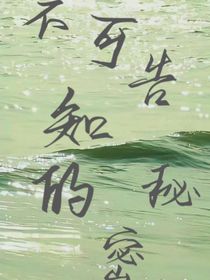 不可告
知的
秘密